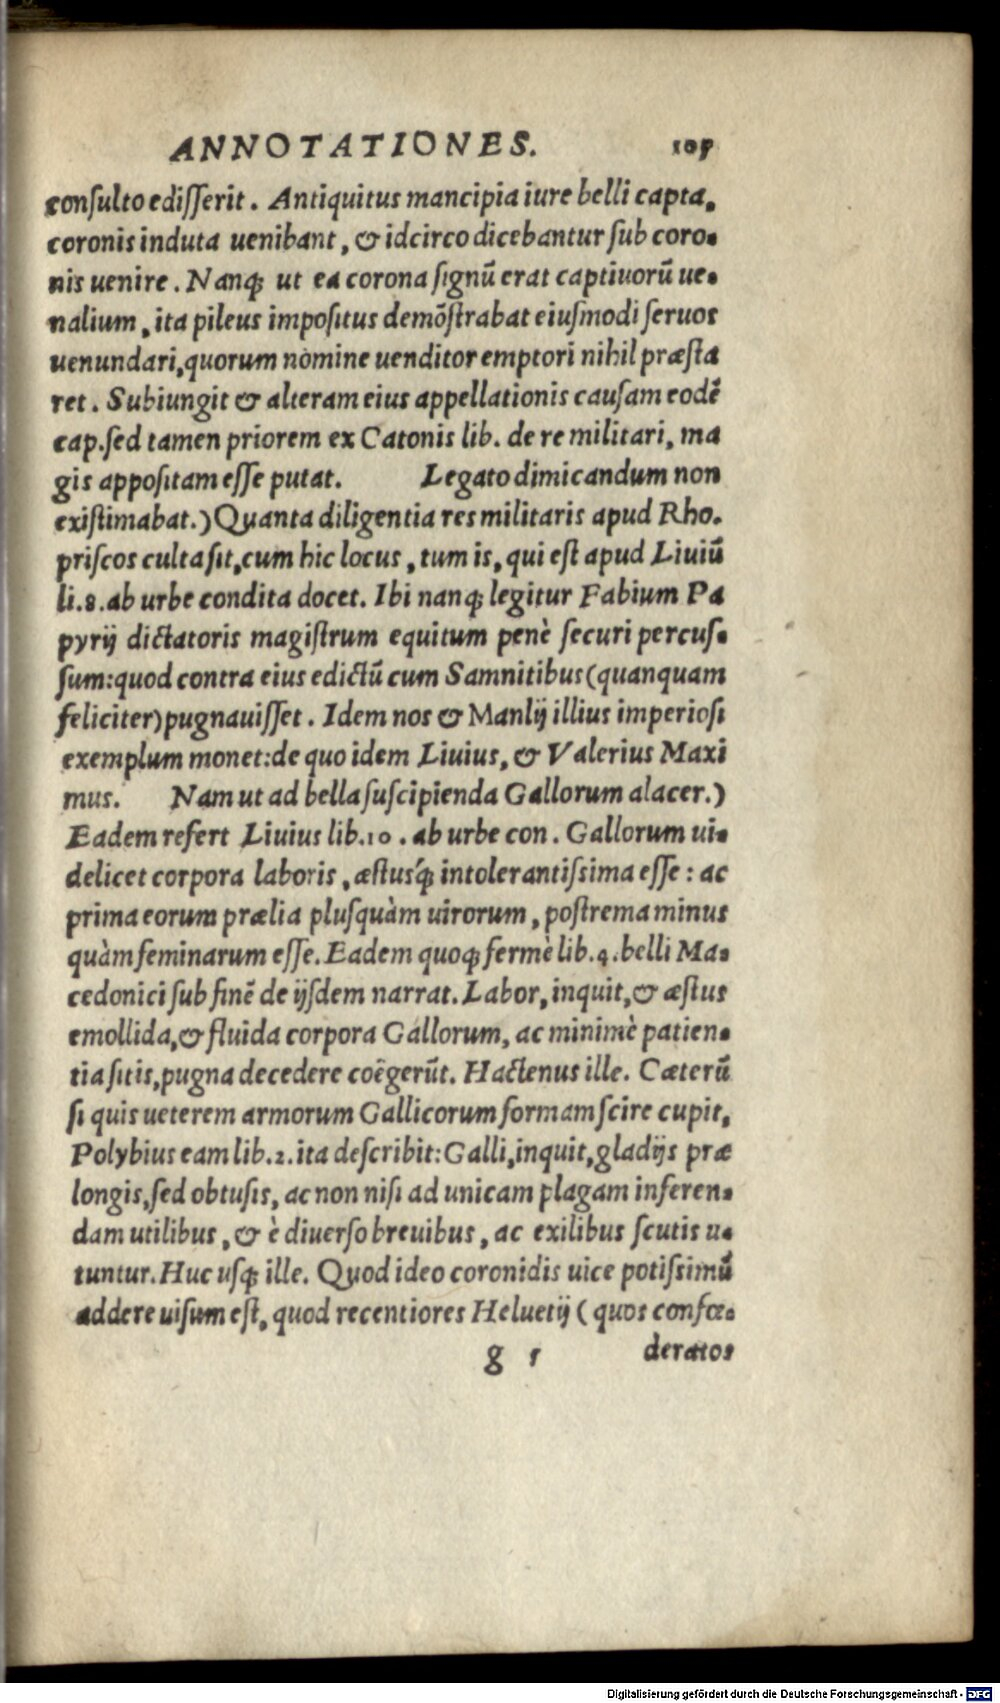 ANNOTATIONES. 105
conſulto ediſſerit. Antiquitus mancipia iure belli capta,
coronis induta uenibant, & idcirco dicebantur ſub coro-
nis uenire. Nanq; ut ea corona ſignū erat captiuorū ue-
nalium, ita pileus impoſitus demōſtrabat eiuſmodi ſeruos
uenundari, quorum nomine uenditor emptori nihil præſta
ret. Subiungit & alteram eius appellationis cauſam eodē
cap. ſed tamen priorem ex Catonis lib. de re militari, ma
gis appoſitam eſſe putat. Legato dimicandum non
exiſtimabat.) Quanta diligentia res militaris apud Rho.
priſcos culta ſit, cum hic locus, tum is, qui eſt apud Liuiū
li.8. ab urbe condita docet. Ibi nanq; legitur Fabium Pa
pyrij dictatoris magiſtrum equitum penè ſecuri percuſ-
ſum: quod contra eius edictū cum Samnitibus (quanquam
feliciter) pugnauiſſet. Idem nos & Manlij illius imperioſi
exemplum monet: de quo idem Liuius, & Valerius Maxi
mus. Nam ut ad bella ſuſcipienda Gallorum alacer.)
Eadem refert Liuius lib.10. ab urbe con. Gallorum ui-
delicet corpora laboris, æſtusq́; intolerantiſſima eſſe: ac
prima eorum prælia pluſquàm uirorum, poſtrema minus
quàm feminarum eſſe. Eadem quoq; fermè lib.4. belli Ma-
cedonici ſub finē de ijſdem narrat. Labor, inquit, & æſtus
emollida, & fluida corpora Gallorum, ac minimè patien-
tia ſitis, pugna decedere coëgerūt. Hactenus ille. Cæterū
ſi quis ueterem armorum Gallicorum formam ſcire cupit,
Polybius eam lib.2. ita deſcribit: Galli, inquit, gladijs præ
longis, ſed obtuſis, ac non niſi ad unicam plagam inferen-
dam utilibus, & è diuerſo breuibus, ac exilibus ſcutis u-
tuntur. Huc uſq; ille. Quod ideo coronidis uice potiſſimū
addere uiſum eſt, quod recentiores Heluetij (quos confœ-
g 5 deratos
Digitalisierung gefördert durch die Deutsche Forschungsgemeinschaft - DFG